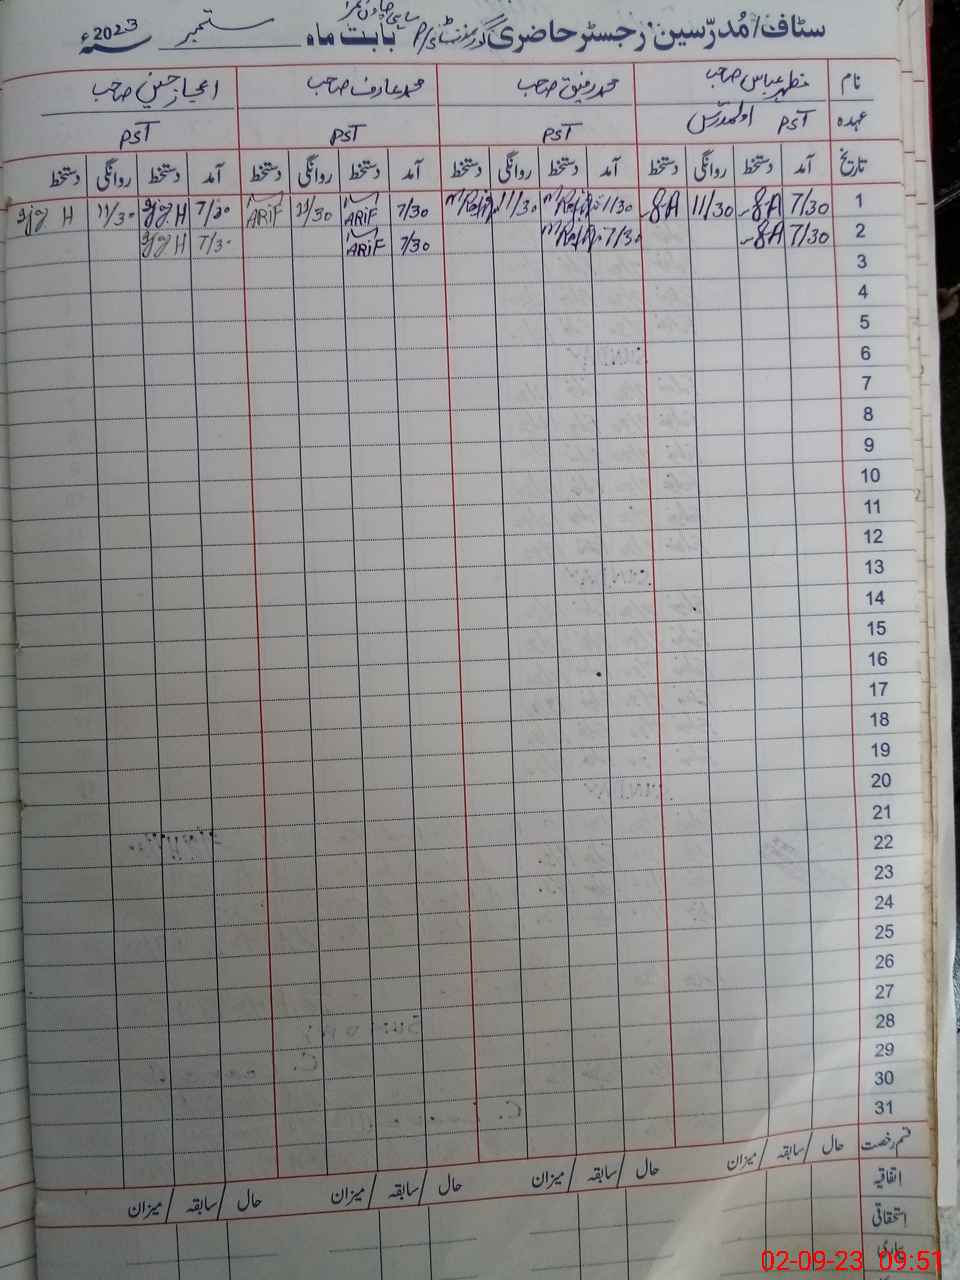 سٹاف/مُدرّسین رجسٹر حاضری گورنمنٹ بابت ماہ ستمبر سنہ 2023ء
نام مظہر عباس صاحب محمد رفیق صاحب محمد عارف صاحب اعجاز حسین صاحب
عہدہ PST اول مدرس PST PST PST
تاریخ آمد دستخط روانگی دستخط آمد دستخط روانگی دستخط آمد دستخط روانگی دستخط آمد دستخط روانگی دستخط
1 7/30 11/30 11/30 M Rafiq 11/30 M Rafiq 7/30 ARiF 11/30 ARiF 7/30 11/30
2 7/30 7/30 M Rafiq 7/30 ARiF 7/30
3
4
5
6
7
8
9
10
11
12
13
14
15
16
17
18
19
20
21
22
23
24
25
26
27
28
29
30
31
قسم رخصت حال / سابقہ / میزان حال / سابقہ / میزان حال / سابقہ / میزان حال / سابقہ / میزان
اتفاقیہ
استحقاقی
بیماری
02-09-23 09:51